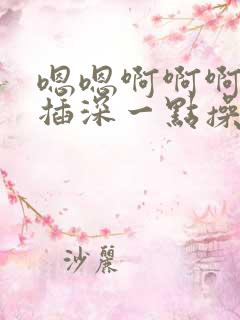 嗯嗯啊啊啊
插深一點操
沙麗